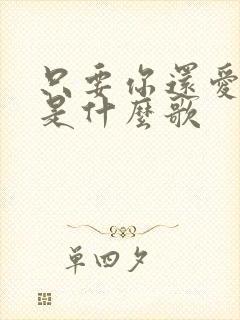 只要你還愛
是什麼歌
單四夕